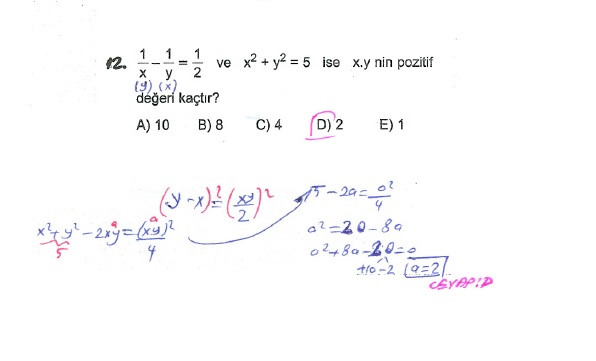 12. 1/x - 1/y = 1/2 ve x² + y² = 5 ise x.y nin pozitif
(y) (x)
değeri kaçtır?
A) 10 B) 8 C) 4 D) 2 E) 1
(y - x)² = (xy/2)²
x² + y² - 2xy = (xy)²/4
5 a a
5 - 2a = a²/4
a² = 20 - 8a
a² + 8a - 20 = 0
+10 -2 a = 2
CEVAP: D